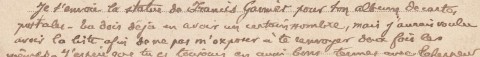 Je t'envoie la statue de Francis Garnier pour ton album de cartes
postales - tu dois déjà en avoir un certain nombre, mais j'aurais voulu
avoir la liste afin de ne pas m'exposer à te renvoyer deux fois les
mêmes. J'espère que tu es toujours en aussi bons termes avec